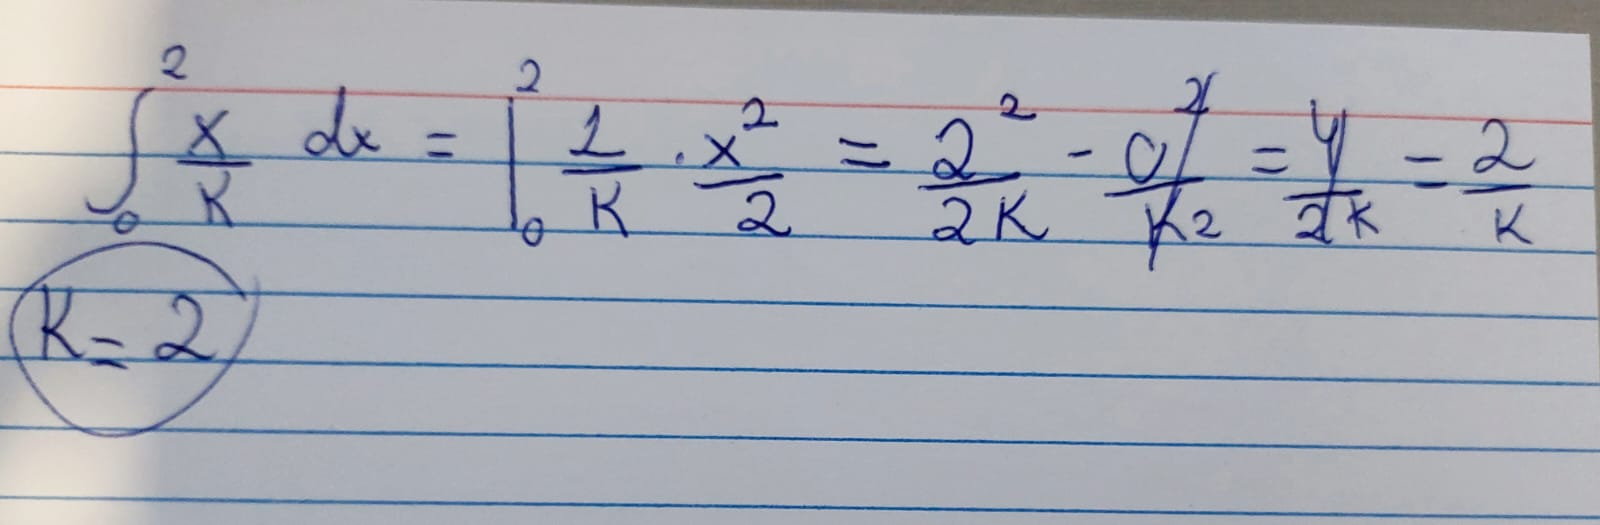 ∫₀² x/K dx = |₀² 1/K · x²/2 = 2²/2K - 0²/K2 = 4/2K = 2/K
K = 2